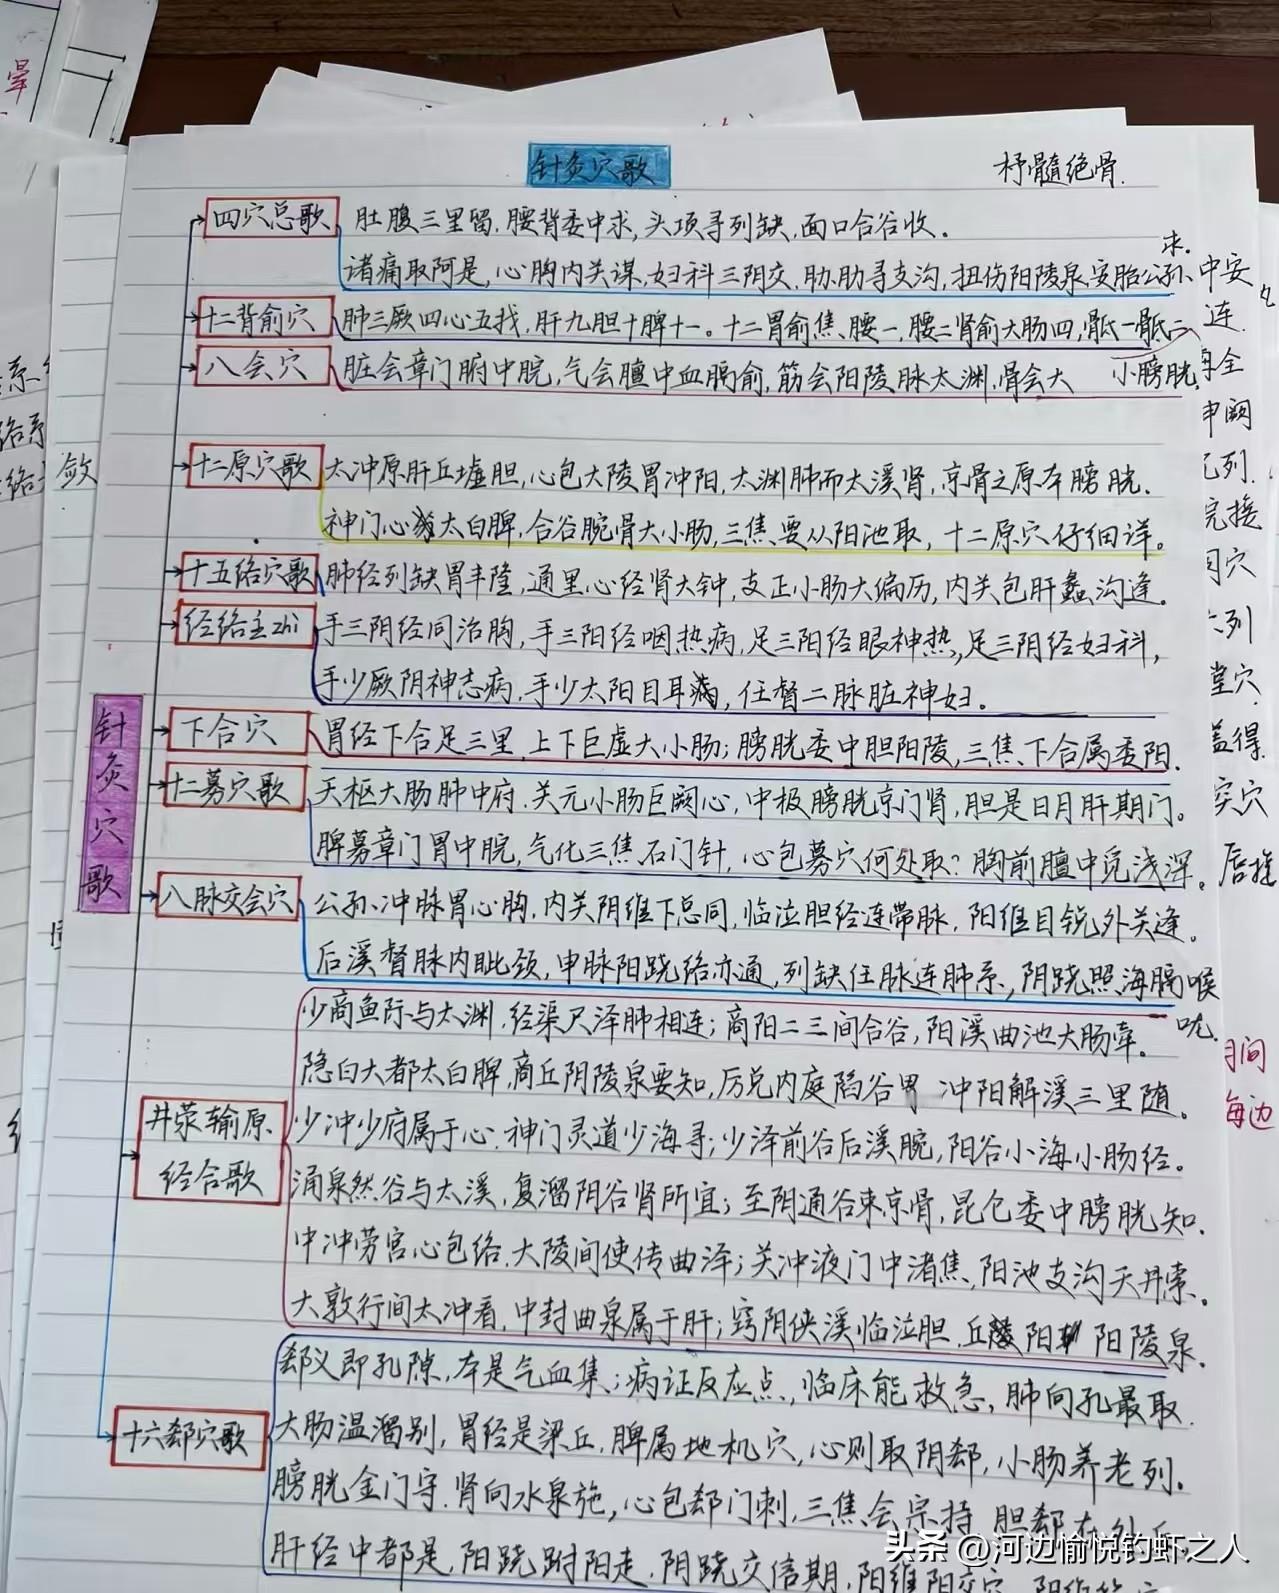 针灸穴歌
杼髓绝骨.
四穴总歌
肚腹三里留.腰背委中求,头项寻列缺,面口合谷收.
求.
诸痛取阿是,心胸内关谋,妇科三阴交,胁肋寻支沟,扭伤阳陵泉,安胎公孙
十二背俞穴
肺三厥四心五找,肝九胆十脾十一。十二胃俞焦腰一,腰二肾俞大肠四,骶一骶二
小膀胱
八会穴
脏会章门腑中脘,气会膻中血膈俞,筋会阳陵脉太渊,骨会大
十二原穴歌
太冲原肝丘墟胆,心包大陵胃冲阳,太渊肺而太溪肾,京骨之原本膀胱.
神门心兮太白脾,合谷腕骨大小肠,三焦要从阳池取,十二原穴仔细详。
十五络穴歌
肺经列缺胃丰隆,通里心经肾大钟,支正小肠大偏历,内关包肝蠡沟逢。
经络主zhi
手三阴经同治胸,手三阳经咽热病,足三阳经眼神热,足三阴经妇科,
手少厥阴神志病.手少太阳目耳病,任督二脉脏神妇。
下合穴
胃经下合足三里,上下巨虚大小肠;膀胱委中胆阳陵,三焦下合属委阳.
十二募穴歌
天枢大肠肺中府.关元小肠巨阙心,中极膀胱京门肾,胆是日月肝期门。
脾募章门胃中脘,气化三焦石门针,心包募穴何处取?胸前膻中觅浅深。
八脉交会穴
公孙冲脉胃心胸,内关阴维下总同,临泣胆经连带脉,阳维目锐外关逢。
后溪督脉内眦颈,申脉阳跷络亦通,列缺任脉连肺系,阴跷照海膈喉
咙.
井荥输原
经合歌
少商鱼际与太渊,经渠尺泽肺相连;商阳二三间合谷,阳溪曲池大肠牵。
隐白大都太白脾,商丘阴陵泉要知,厉兑内庭陷谷胃 冲阳解溪三里随。
少冲少府属于心.神门灵道少海寻;少泽前谷后溪腕,阳谷小海小肠经。
涌泉然谷与太溪,复溜阴谷肾所宜;至阴通谷束京骨,昆仑委中膀胱知.
中冲劳宫心包络.大陵间使传曲泽;关冲液门中渚焦,阳池支沟天井索。
大敦行间太冲看,中封曲泉属于肝;窍阴侠溪临泣胆,丘墟阳辅阳陵泉.
十六郄穴歌
郄义即孔隙,本是气血集;病证反应点,临床能救急,肺向孔最取.
大肠温溜别,胃经是梁丘.脾属地机穴,心则取阴郄,小肠养老列。
膀胱金门守.肾向水泉施,心包郄门刺,三焦会宗持 胆郄在外丘
肝经中都是,阳跷跗阳走,阴跷交信期,阳维阳交穴
针灸穴歌
晕
敛
中安
连.
申阙
列.
同穴
列
堂穴
盖得
穴
唇推
间
每边
头条 @河边愉悦钓虾之人